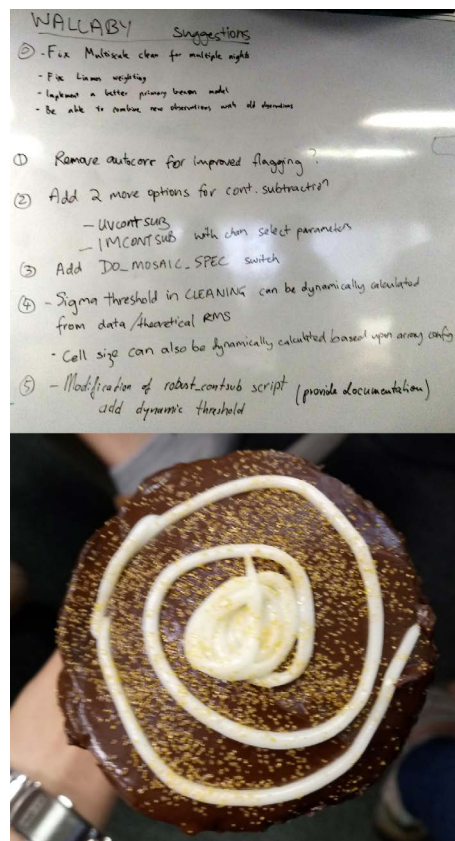 WALLABY Suggestions
⓪ - Fix Multiscale clean for multiple nights
- Fix Linmos weighting
- Implement a better primary beam model
- Be able to combine new observations with old observations
① Remove autocorr for improved flagging?
② Add 2 more options for cont. subtraction
- UVCONTSUB
- IMCONTSUB with chan select parameters
③ Add DO_MOSAIC_SPEC switch
④ - Sigma threshold in CLEANING can be dynamically calculated
from data/theoretical RMS
- Cell size can also be dynamically calculated based upon array config
⑤ - Modification of robust_contsub script (provide documentation)
add dynamic threshold